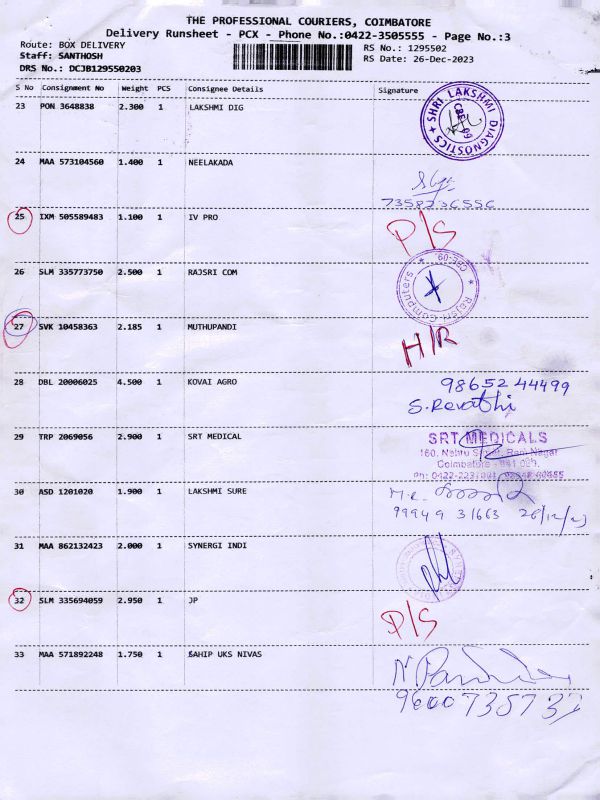 THE PROFESSIONAL COURIERS, COIMBATORE
Delivery Runsheet - PCX - Phone No.:0422-3505555 - Page No.:3
Route: BOX DELIVERY
RS No.: 1295502
Staff: SANTHOSH
RS Date: 26-Dec-2023
DRS No.: DCJB129550203
S No Consignment No Weight PCS Consignee Details Signature
23 PON 3648838 2.300 1 LAKSHMI DIG
SHRI LAKSHMI DIAGNOSTICS
CBE-09
24 MAA 573104560 1.400 1 NEELAKADA
7358236556
25 IXM 505589483 1.100 1 IV PRO
P/S
26 SLM 335773750 2.500 1 RAJSRI COM
Rajsri Computers CBE-09.
27 SVK 10458363 2.185 1 MUTHUPANDI
H/R
28 DBL 20006025 4.500 1 KOVAI AGRO
98652 44499
S.Revathi
29 TRP 2069056 2.900 1 SRT MEDICAL
SRT MEDICALS
160, Nehru Street, Ram Nagar
Coimbatore - 641 009.
Ph: 0422-223
30 ASD 1201020 1.900 1 LAKSHMI SURE
99949 31663 26/12/23
31 MAA 862132423 2.000 1 SYNERGI INDI
32 SLM 335694059 2.950 1 JP
P/S
33 MAA 571892248 1.750 1 SAHIP UKS NIVAS
9600735737